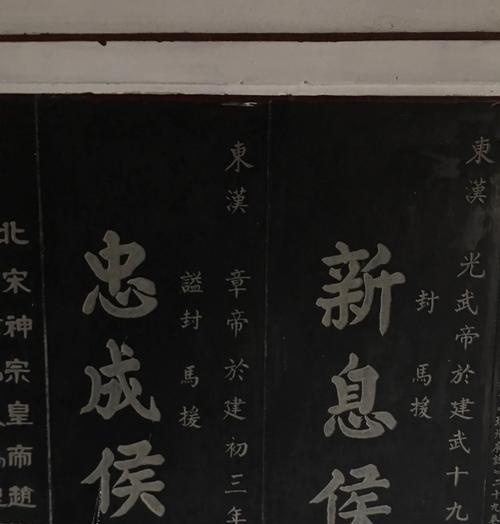 東漢 光武帝於建武十九
封馬援
新息侯
東漢 章帝於建初三年
謚封馬援
忠成侯
北宋神宗皇帝趙